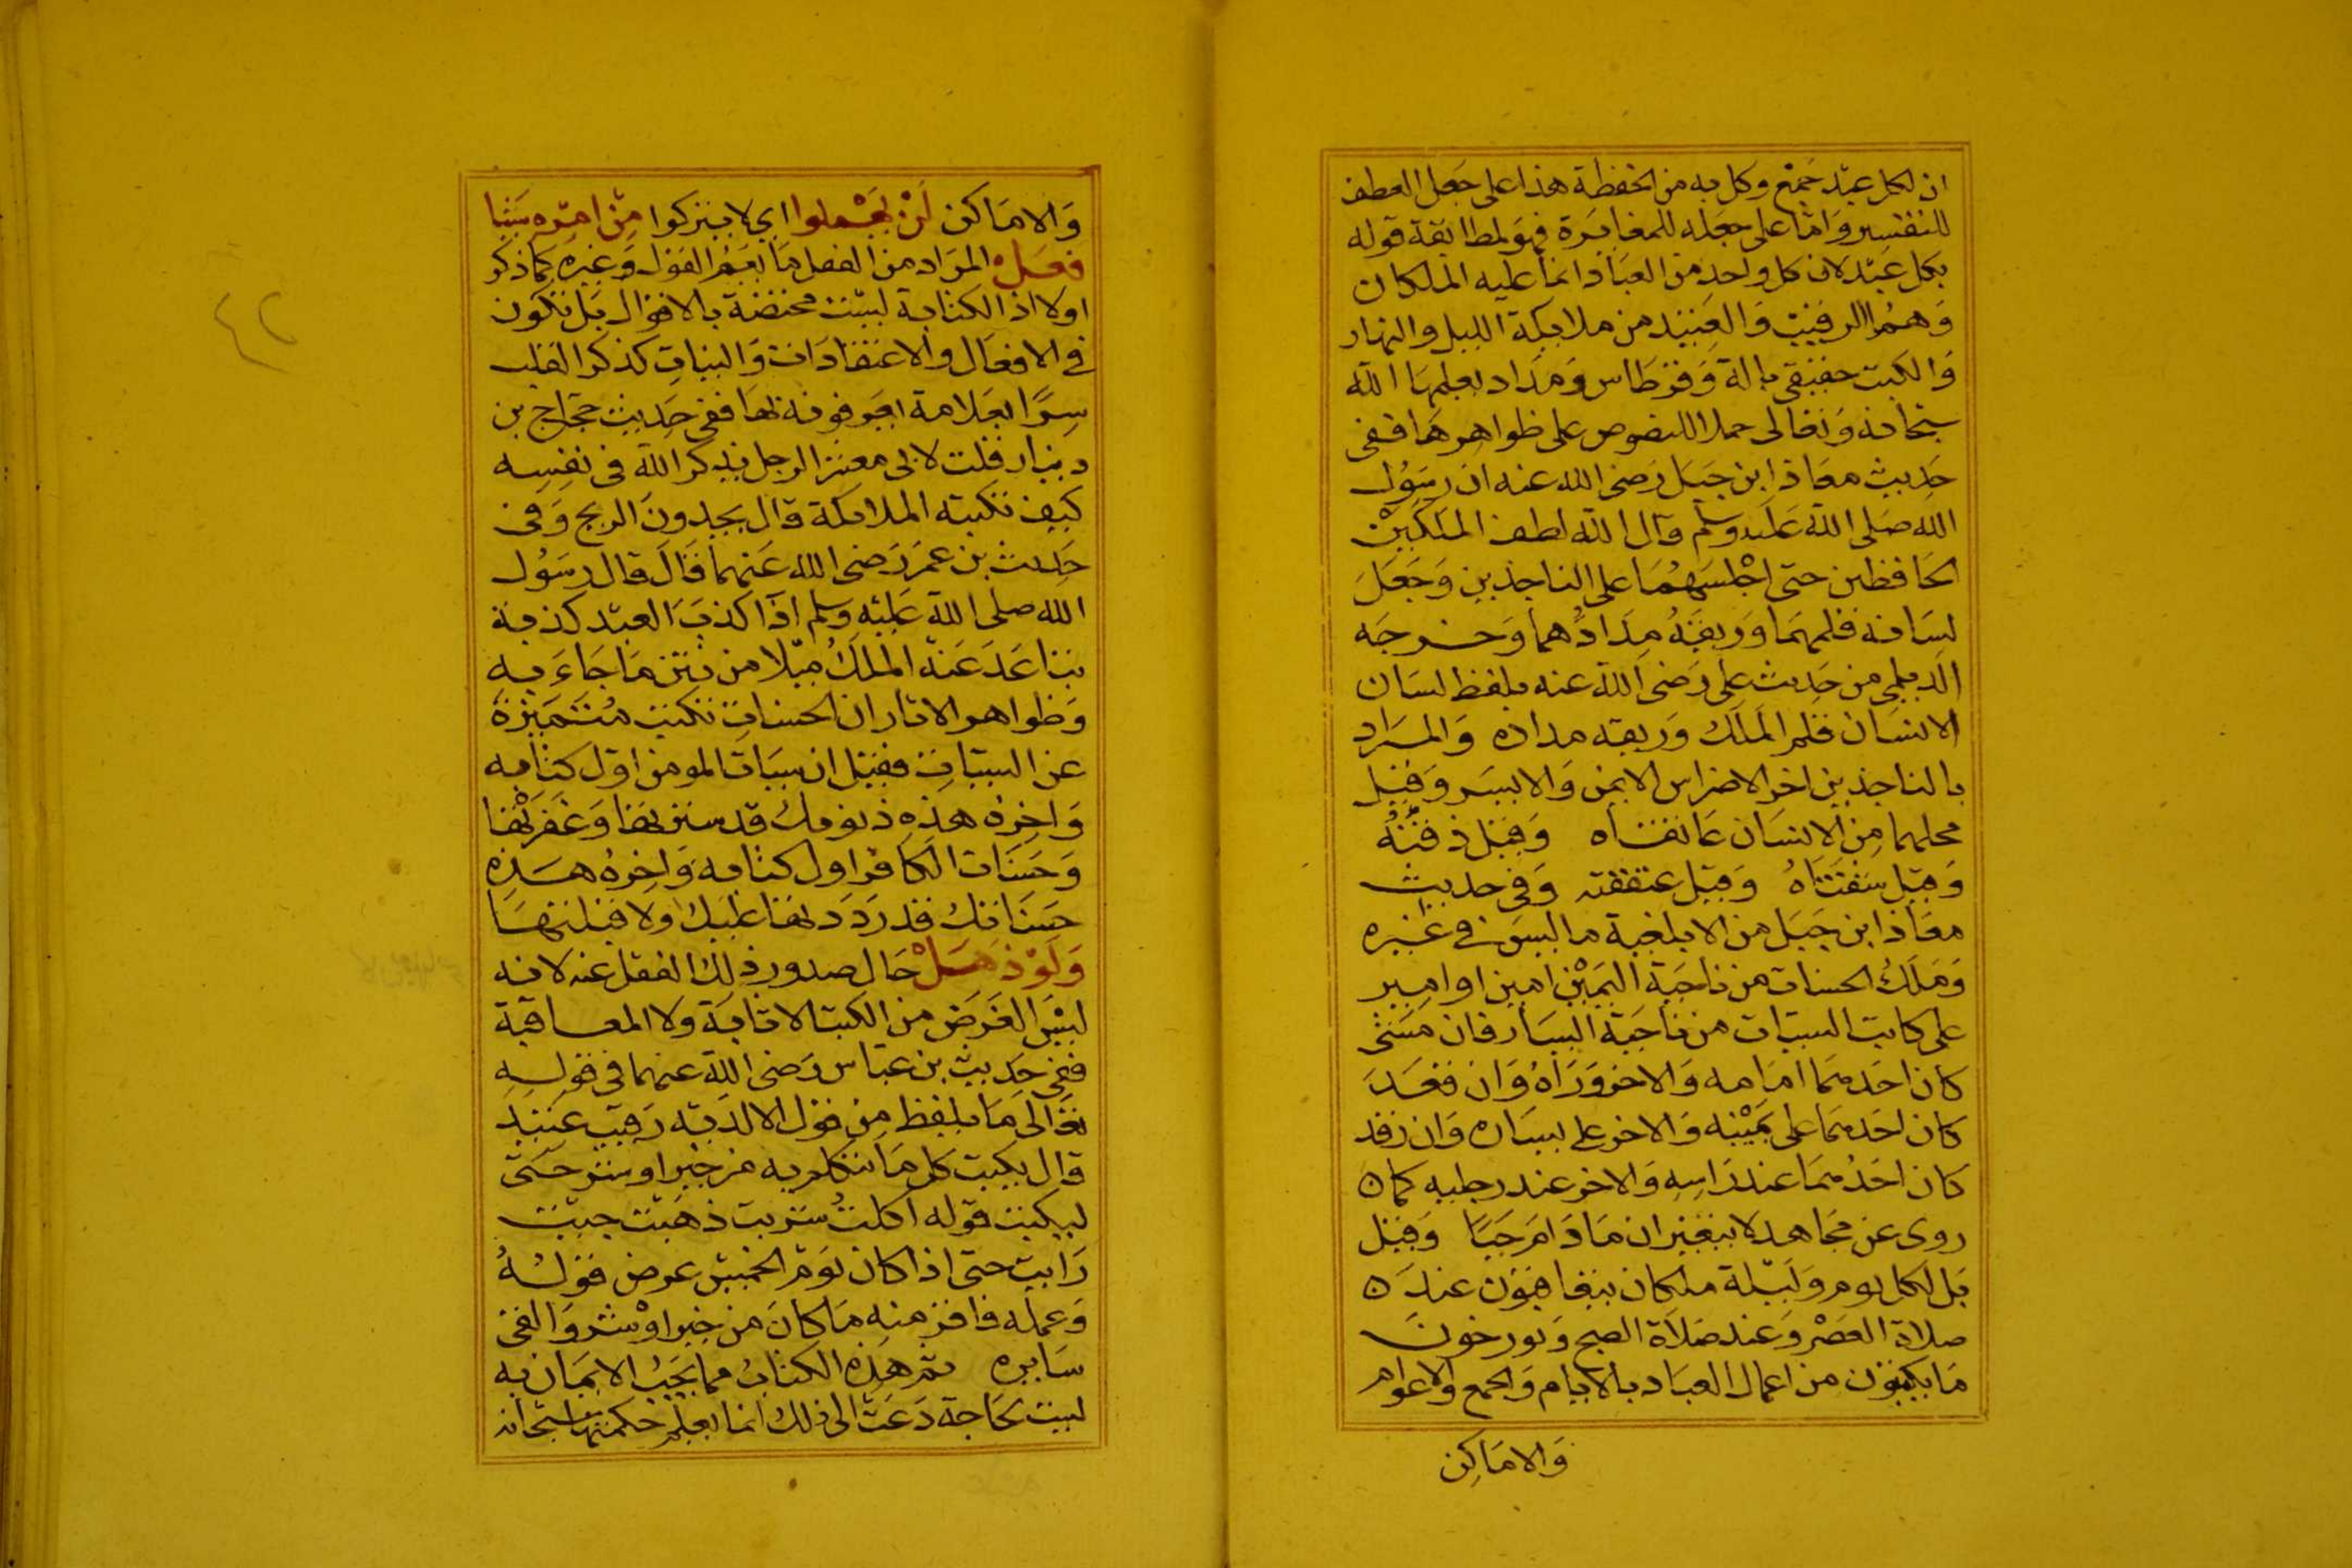 ان لكل عبد جمع وكل به من الحفظة هذا على جعل العطف
للتفسير واما على جعله للمغايرة فهو لمطابقة قوله
بكل عبد لان كل واحد من العباد انما عليه الملكان
وهما الرقيب والعتيد من ملايكة الليل والنهار
والكتب حقيقي بالة وقرطاس ومداد يعلمها الله
سبحانه وتعالى حملا للنصوص على ظواهرها ففى
حديث معاذ ابن جبل رضى الله عنه ان رسول
الله صلى الله عليه وسلم قال ان الله لطف الملكين
الحافظين حتى اجلسهما على الناجذين وجعل
لسانه قلمهما وريقه مدادهما وخرجه
الديلمى من حديث على رضى الله عنه بلفظ لسان
الانسان قلم الملك وريقه مداده والمراد
بالناجذين اخر الاضراس الايمن والايسر وقيل
محلهما من الانسان عاتقاه وقيل ذقنه
وقيل شفتاه وقيل عنفقته وفى حديث
معاذ ابن جبل من الابلغية ما ليس في غيره
وملك الحسنات من ناحية اليمين امين او امير
على كاتب السيئات من ناحية اليسار فان مشى
كان احدهما امامه والاخر وراه وان قعد
كان احدهما على يمينه والاخر على يساره وان رقد
كان احدهما عند راسه والاخر عند رجليه كما
روى عن مجاهد لا يتغيران ما دام حيا وقيل
بل لكل يوم وليلة ملكان يتعاقبون عند
صلاة العصر وعند صلاة الصبح ويورخون
ما يكتبون من اعمال العباد بالايام والجمع والاعوام
والاماكن
والاماكن لن يهملوا اي لا يتركوا من امره شيئا
فعل المراد من الفعل ما يعم القول وغيره كما ذكر
اولا اذ الكتابة ليست مختصة بالاقوال بل تكون
في الافعال والاعتقادات والنيات كذكر القلب
سرا بعلامة يعرفونه بها ففى حديث حجاج بن
دينار قلت لابى معشر الرجل يذكر الله فى نفسه
كيف تكتبه الملائكة قال يجدون الريح وفى
حديث بن عمر رضى الله عنهما قال قال رسول
الله صلى الله عليه وسلم اذا كذب العبد كذبة
تباعد عنه الملك ميلا من نتن ما جاء به
وظواهر الاثار ان الحسنات تكتب متميزة
عن السيئات فقيل ان سيئات المومن اول كتابه
واخره هذه ذنوبك قد سترتها وغفرتها
وحسنات الكافر اول كتابه واخره هذه
حسناتك قد رددتها عليك ولا قبلتها
ولو ذهل حال صدور ذلك الفعل عنه لانه
ليس الغرض من الكتب الاثابة ولا المعاقبة
ففى حديث بن عباس رضى الله عنهما فى قوله
تعالى ما يلفظ من قول الا لديه رقيب عتيد
قال يكتب كل ما تتكلم به من خير او شر حتى
ليكتب قوله اكلت شربت ذهبت جيت
رايت حتى اذا كان يوم الخميس عرض قوله
وعمله فاقر منه ما كان من خير او شر والقى
سايره ثم هذه الكتاب مما يجب الايمان به
ليست لحاجة دعت الى ذلك انما يعلم حكمتها سبحانه
٤٢